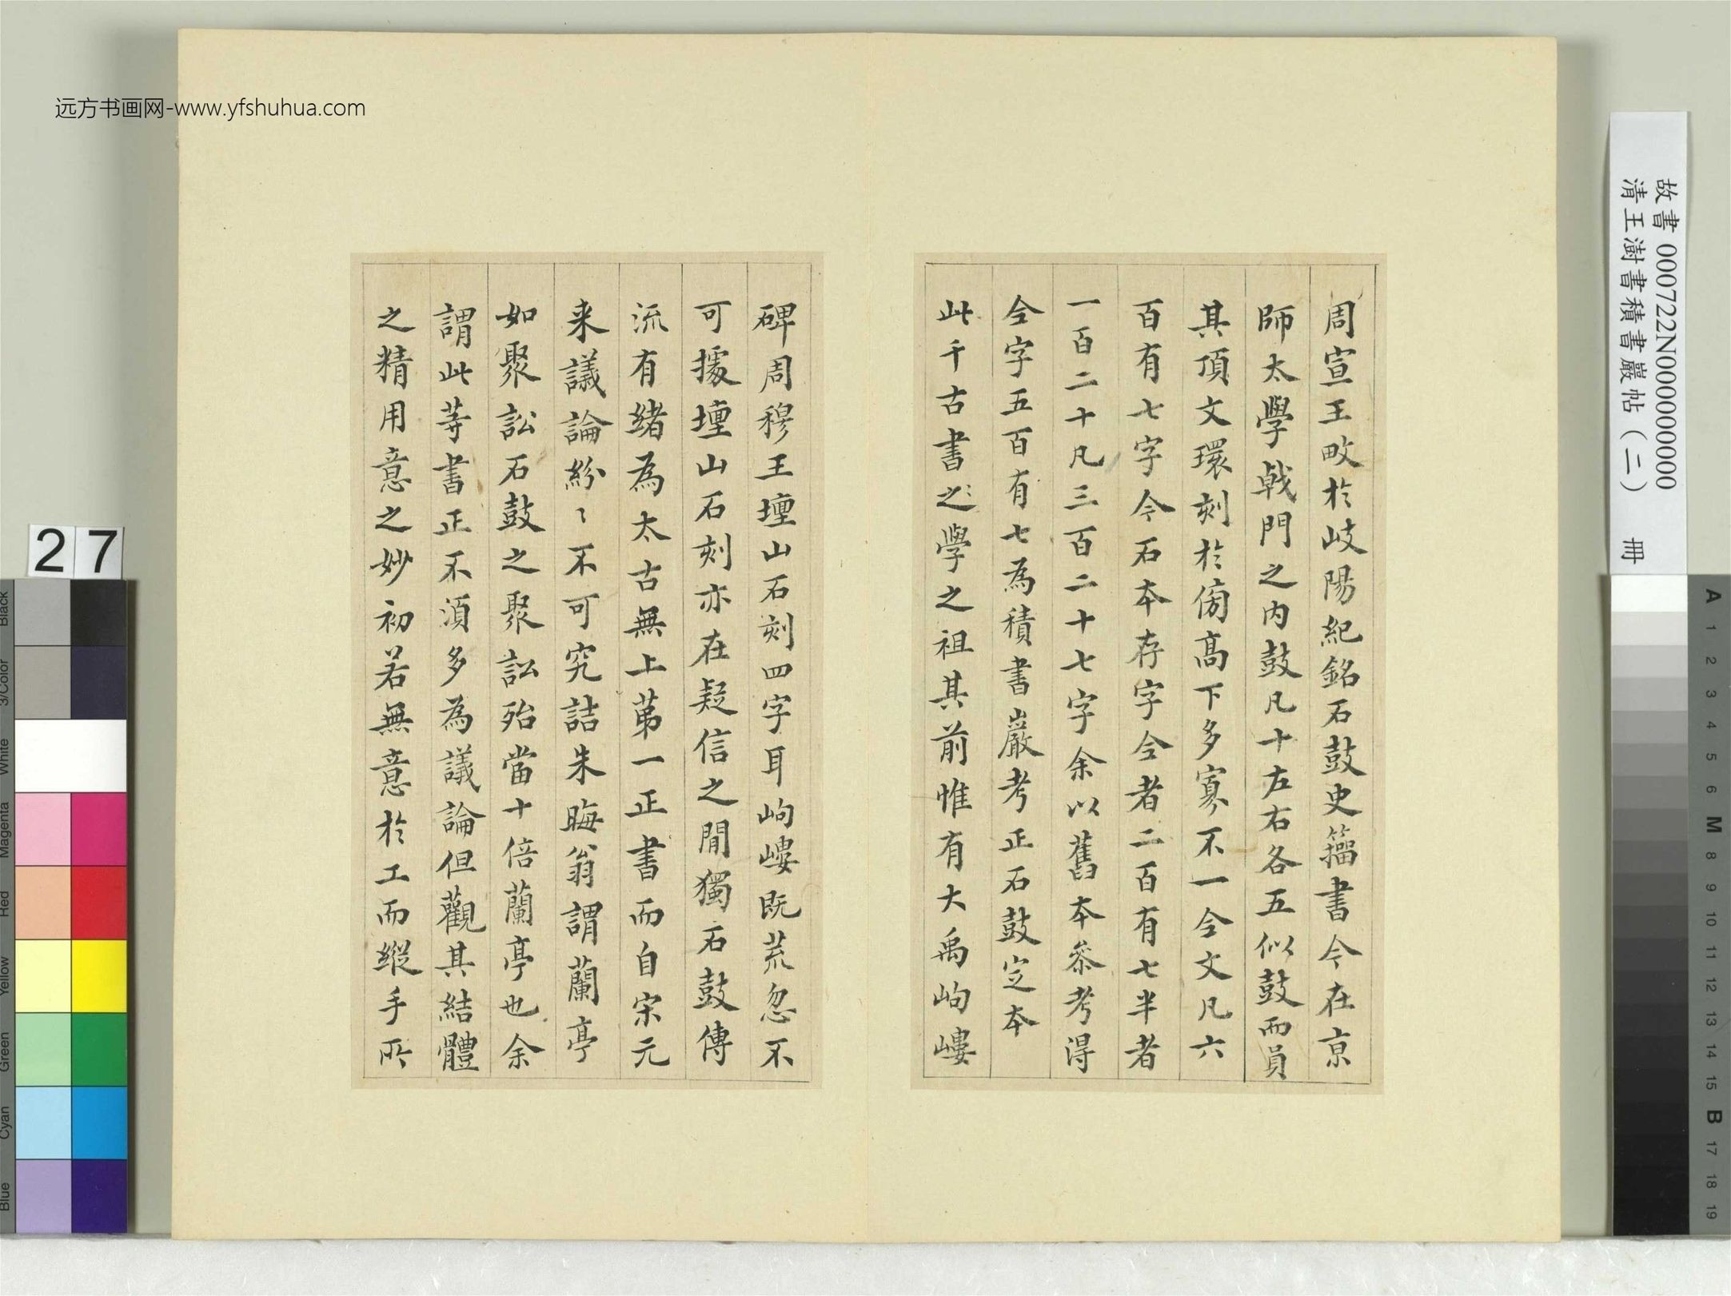 远方书画网-www.yfshuhua.com
周宣王畋於岐陽紀銘石鼓史籀書今在京
師太學戟門之內鼓凡十左右各五似鼓而員
其頂文環刻於傍高下多寡不一全文凡六
百有七字今石本存字全者二百有七半者
一百二十凡三百二十七字余以舊本叅考得
全字五百有七為積書巖考正石鼓定本
此千古書之學之祖其前惟有大禹岣嶁
碑周穆王壇山石刻四字耳岣嶁既荒忽不
可據壇山石刻亦在疑信之間獨石鼓傳
流有緒為太古無上第一正書而自宋元
来議論紛〻不可究詰朱晦翁謂蘭亭
如聚訟石鼓之聚訟殆當十倍蘭亭也余
謂此等書正不須多為議論但觀其結體
之精用意之妙初若無意於工而縱手所
故書 000722N000000000
清王澍書積書巖帖(二) 冊
27
Black
3/Color
White
Magenta
Red
Yellow
Green
Cyan
Blue
A
1
2
3
4
5
6
M
8
9
10
11
12
13
14
15
B
17
18
19